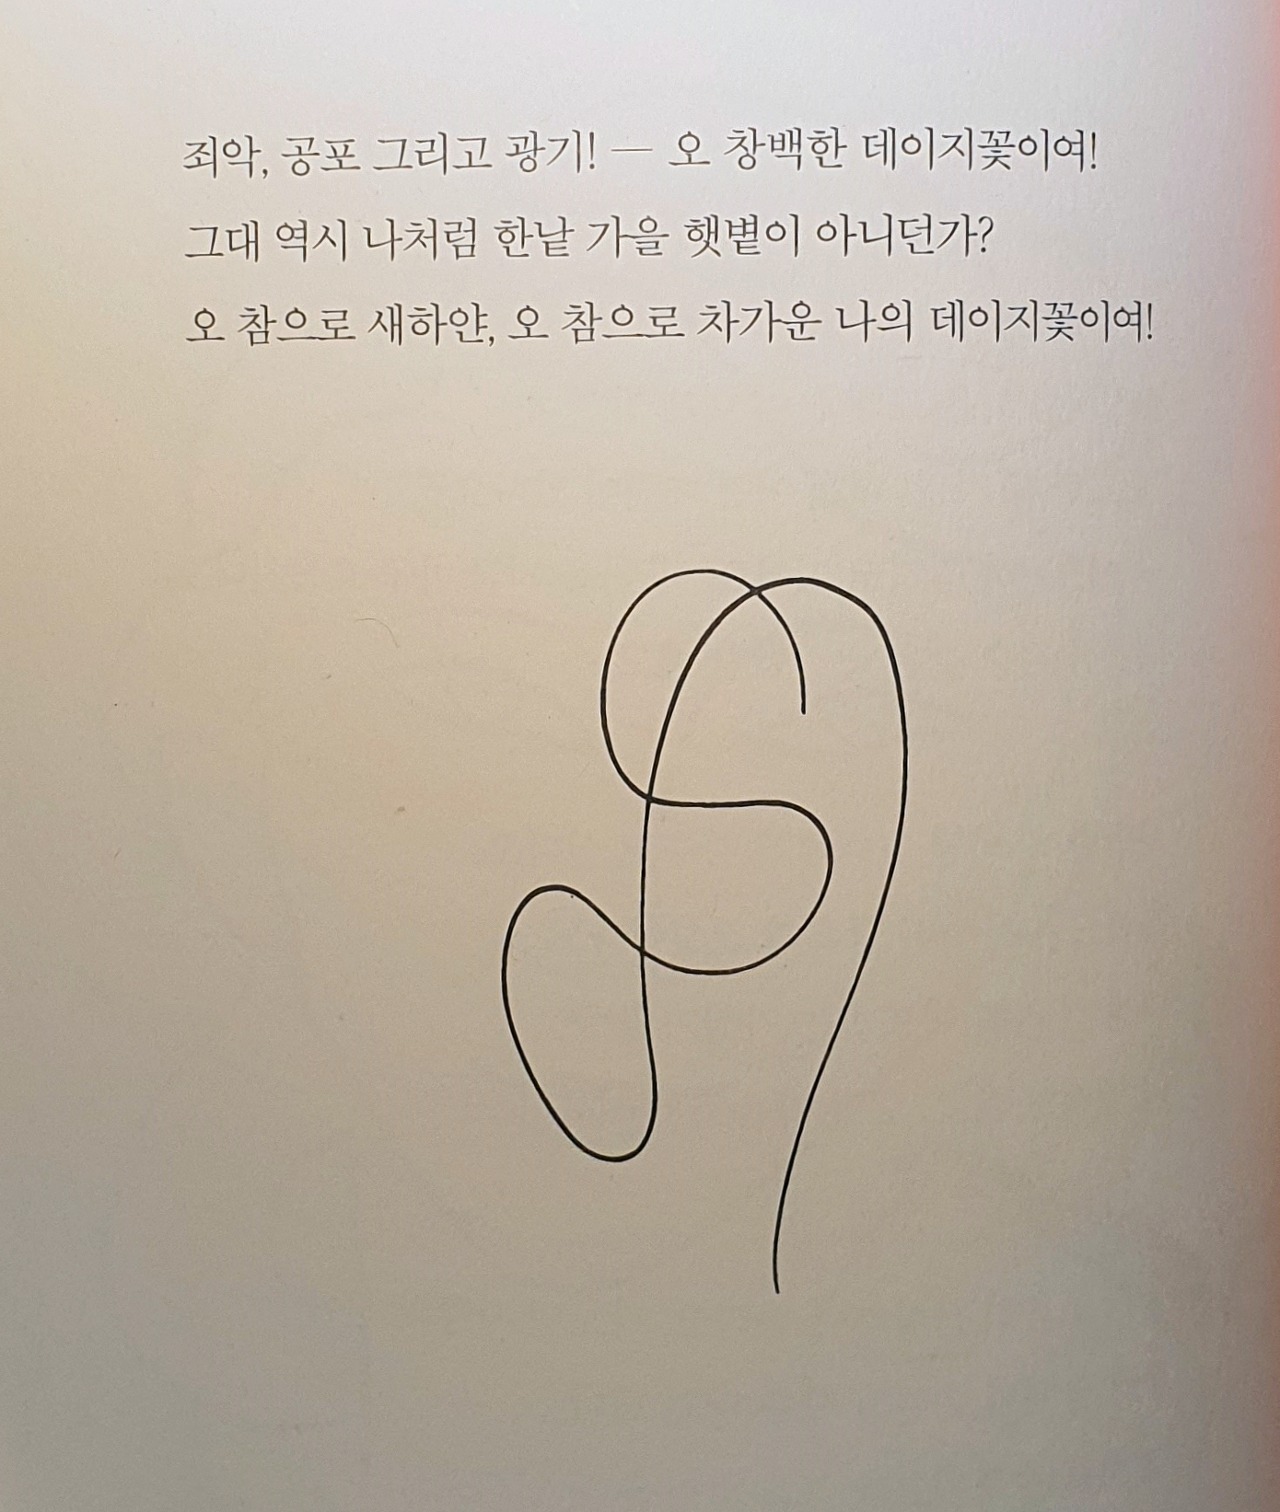 죄악, 공포 그리고 광기! — 오 창백한 데이지꽃이여!
그대 역시 나처럼 한낱 가을 햇볕이 아니던가?
오 참으로 새하얀, 오 참으로 차가운 나의 데이지꽃이여!